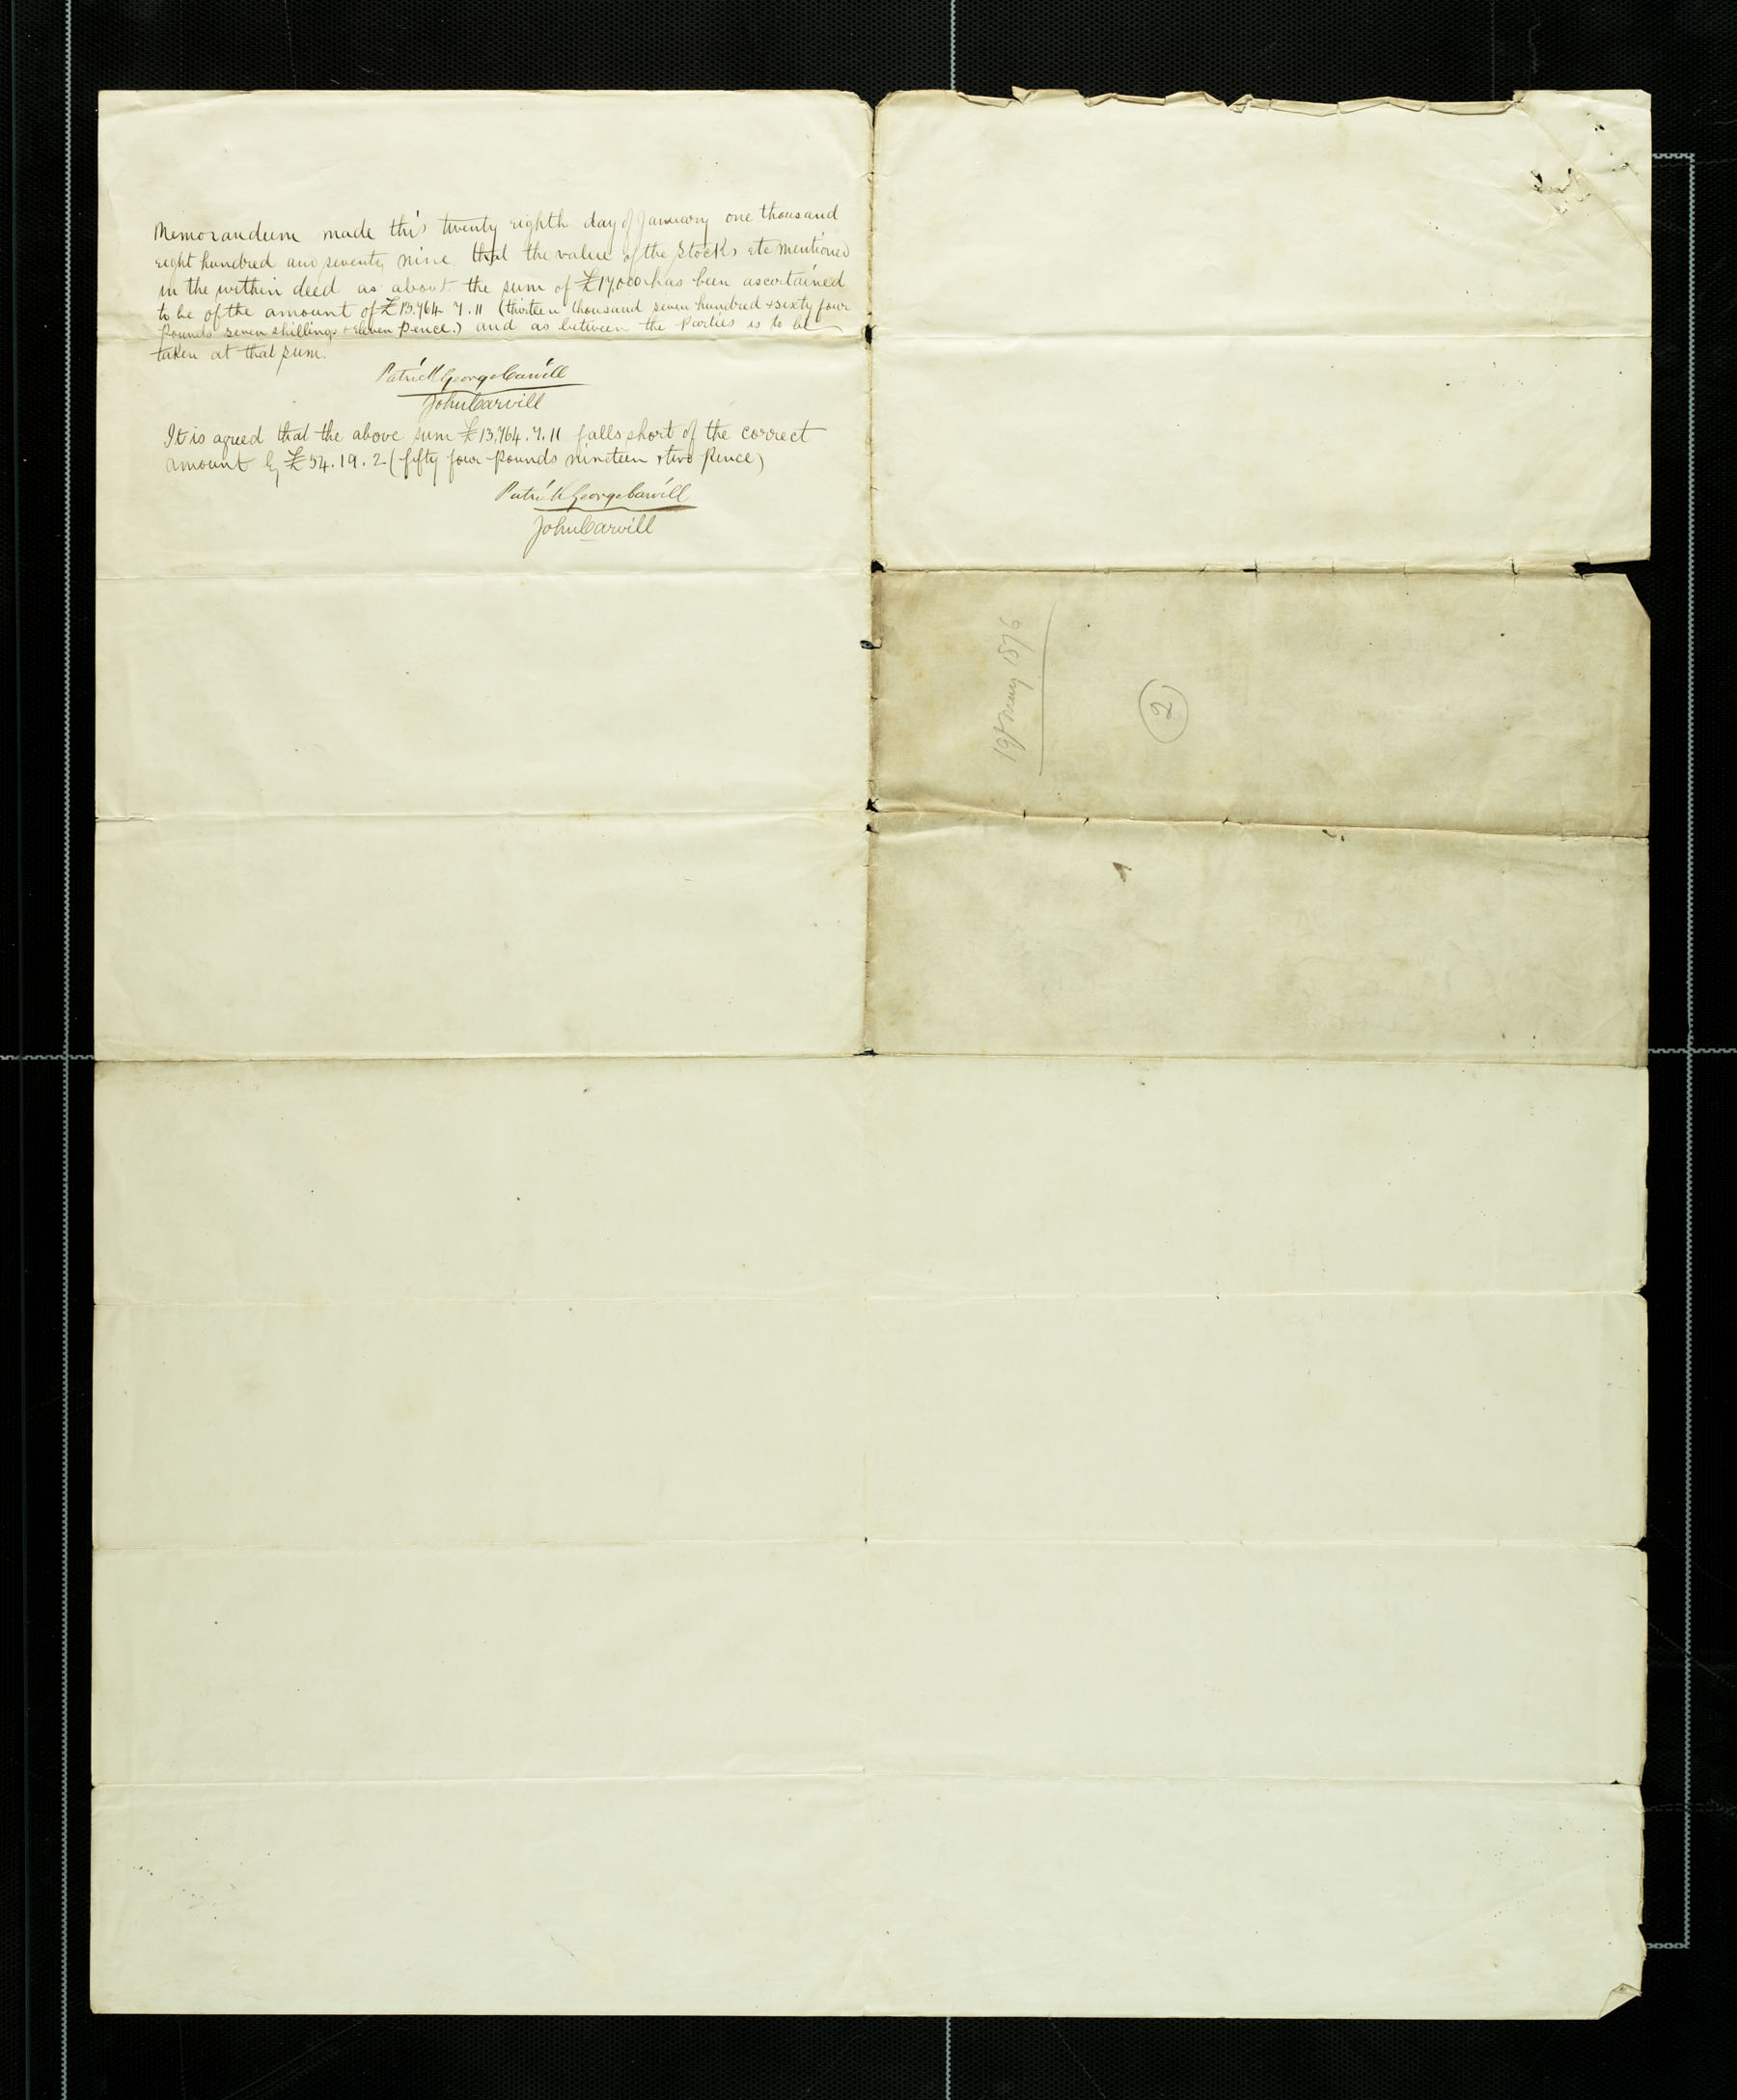 Memorandum made this twenty eighth day of January one thousand
eight hundred and seventy nine that the value of the Stocks etc mentioned
in the within deed as about the sum of £17,000 has been ascertained
to be of the amount of £13,764. 7. 11 (thirteen thousand seven hundred + sixty four
pounds seven shillings + eleven pence.) and as between the Parties is to be
taken at that sum.
Patrick George Carvill
John Carvill
It is agreed that the above sum £13,764. 7. 11 falls short of the correct
amount by £54. 19. 2 (fifty four pounds nineteen + two pence)
Patrick George Carvill
John Carvill
19th May 1876
2